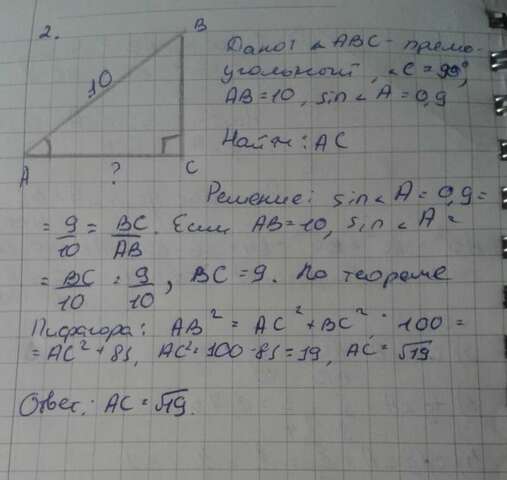 2.
B
10
A
?
C
Дано: ∠ABC - прямо-
угольный, ∠C = 99°,
AB = 10, sin ∠A = 0,9
Найти: AC
Решение: sin ∠A = 0,9 =
= 9/10 = BC/AB. Если AB = 10, sin ∠A =
= BC/10 = 9/10, BC = 9. По теореме
Пифагора: AB² = AC² + BC² : 100 =
= AC² + 81, AC² = 100 - 81 = 19, AC = √19
Ответ: AC = √19.